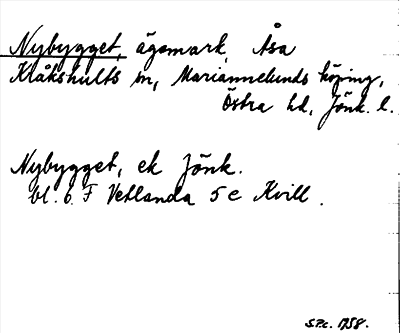 Nybygget, ägomark, Åsa
Klåkshults sn, Mariannelunds köping,
Östra hd, Jönk. l.
Nybygget, ek Jönk.
bl. 6. F Vetlanda 5 e Kvill.
1958.